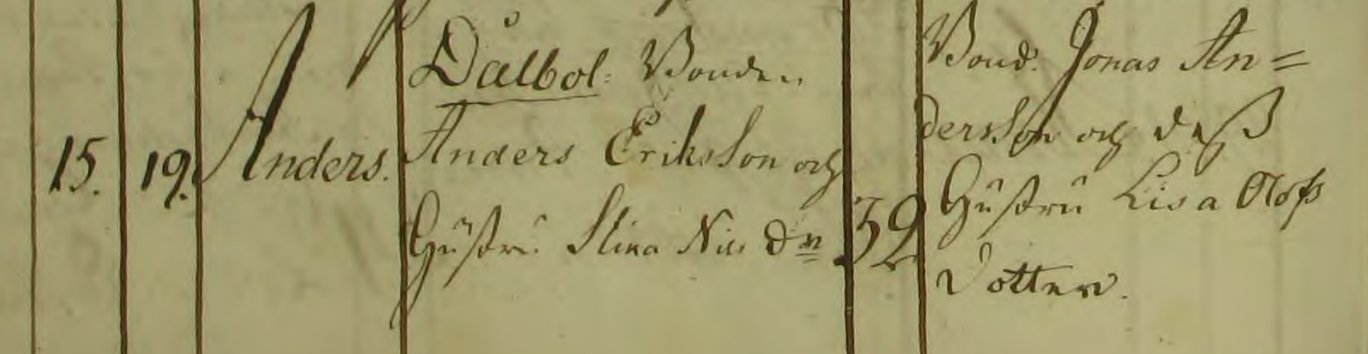 15. 19. Anders.
Dålbol: Bonden
Anders Eriksson och
Hustru Stina Nils dr
32
Bond. Jonas An=
dersson och dess
Hustru Lisa Olofs
Dotter.